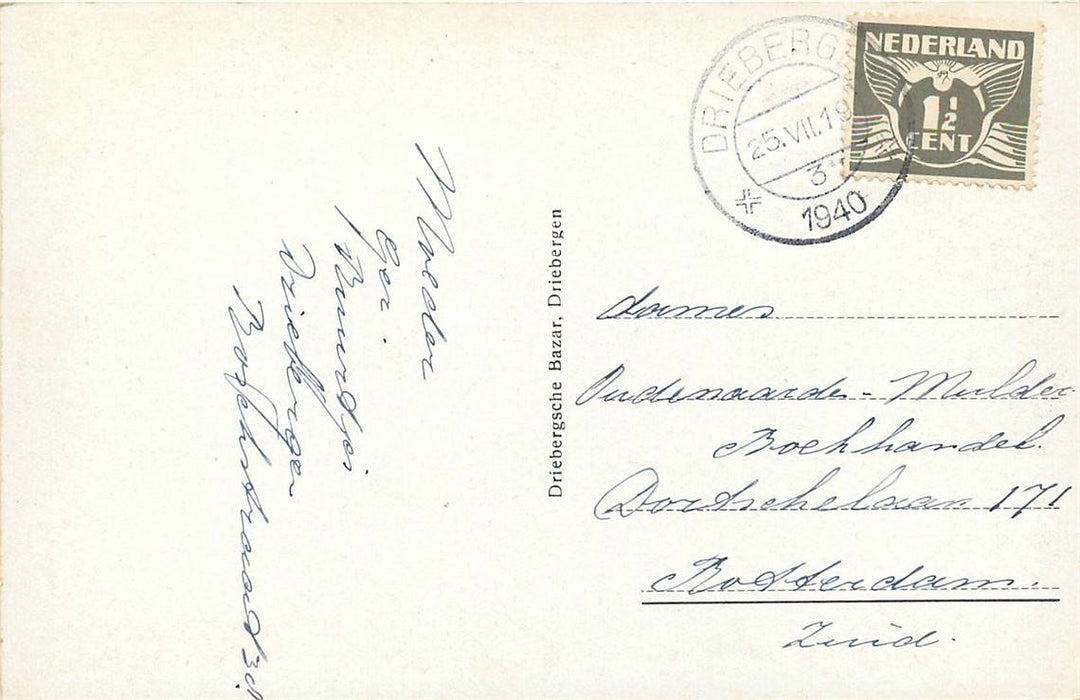 NEDERLAND
1½
CENT
DRIEBERG
25.VII.19
3
1940
Moeder
Ger.
Driebergen
Driebergsche Bazar, Driebergen
dames
Oudenaarde - Mulder
Boekhandel.
Dordtschelaan 171
Rotterdam.
Zuid.